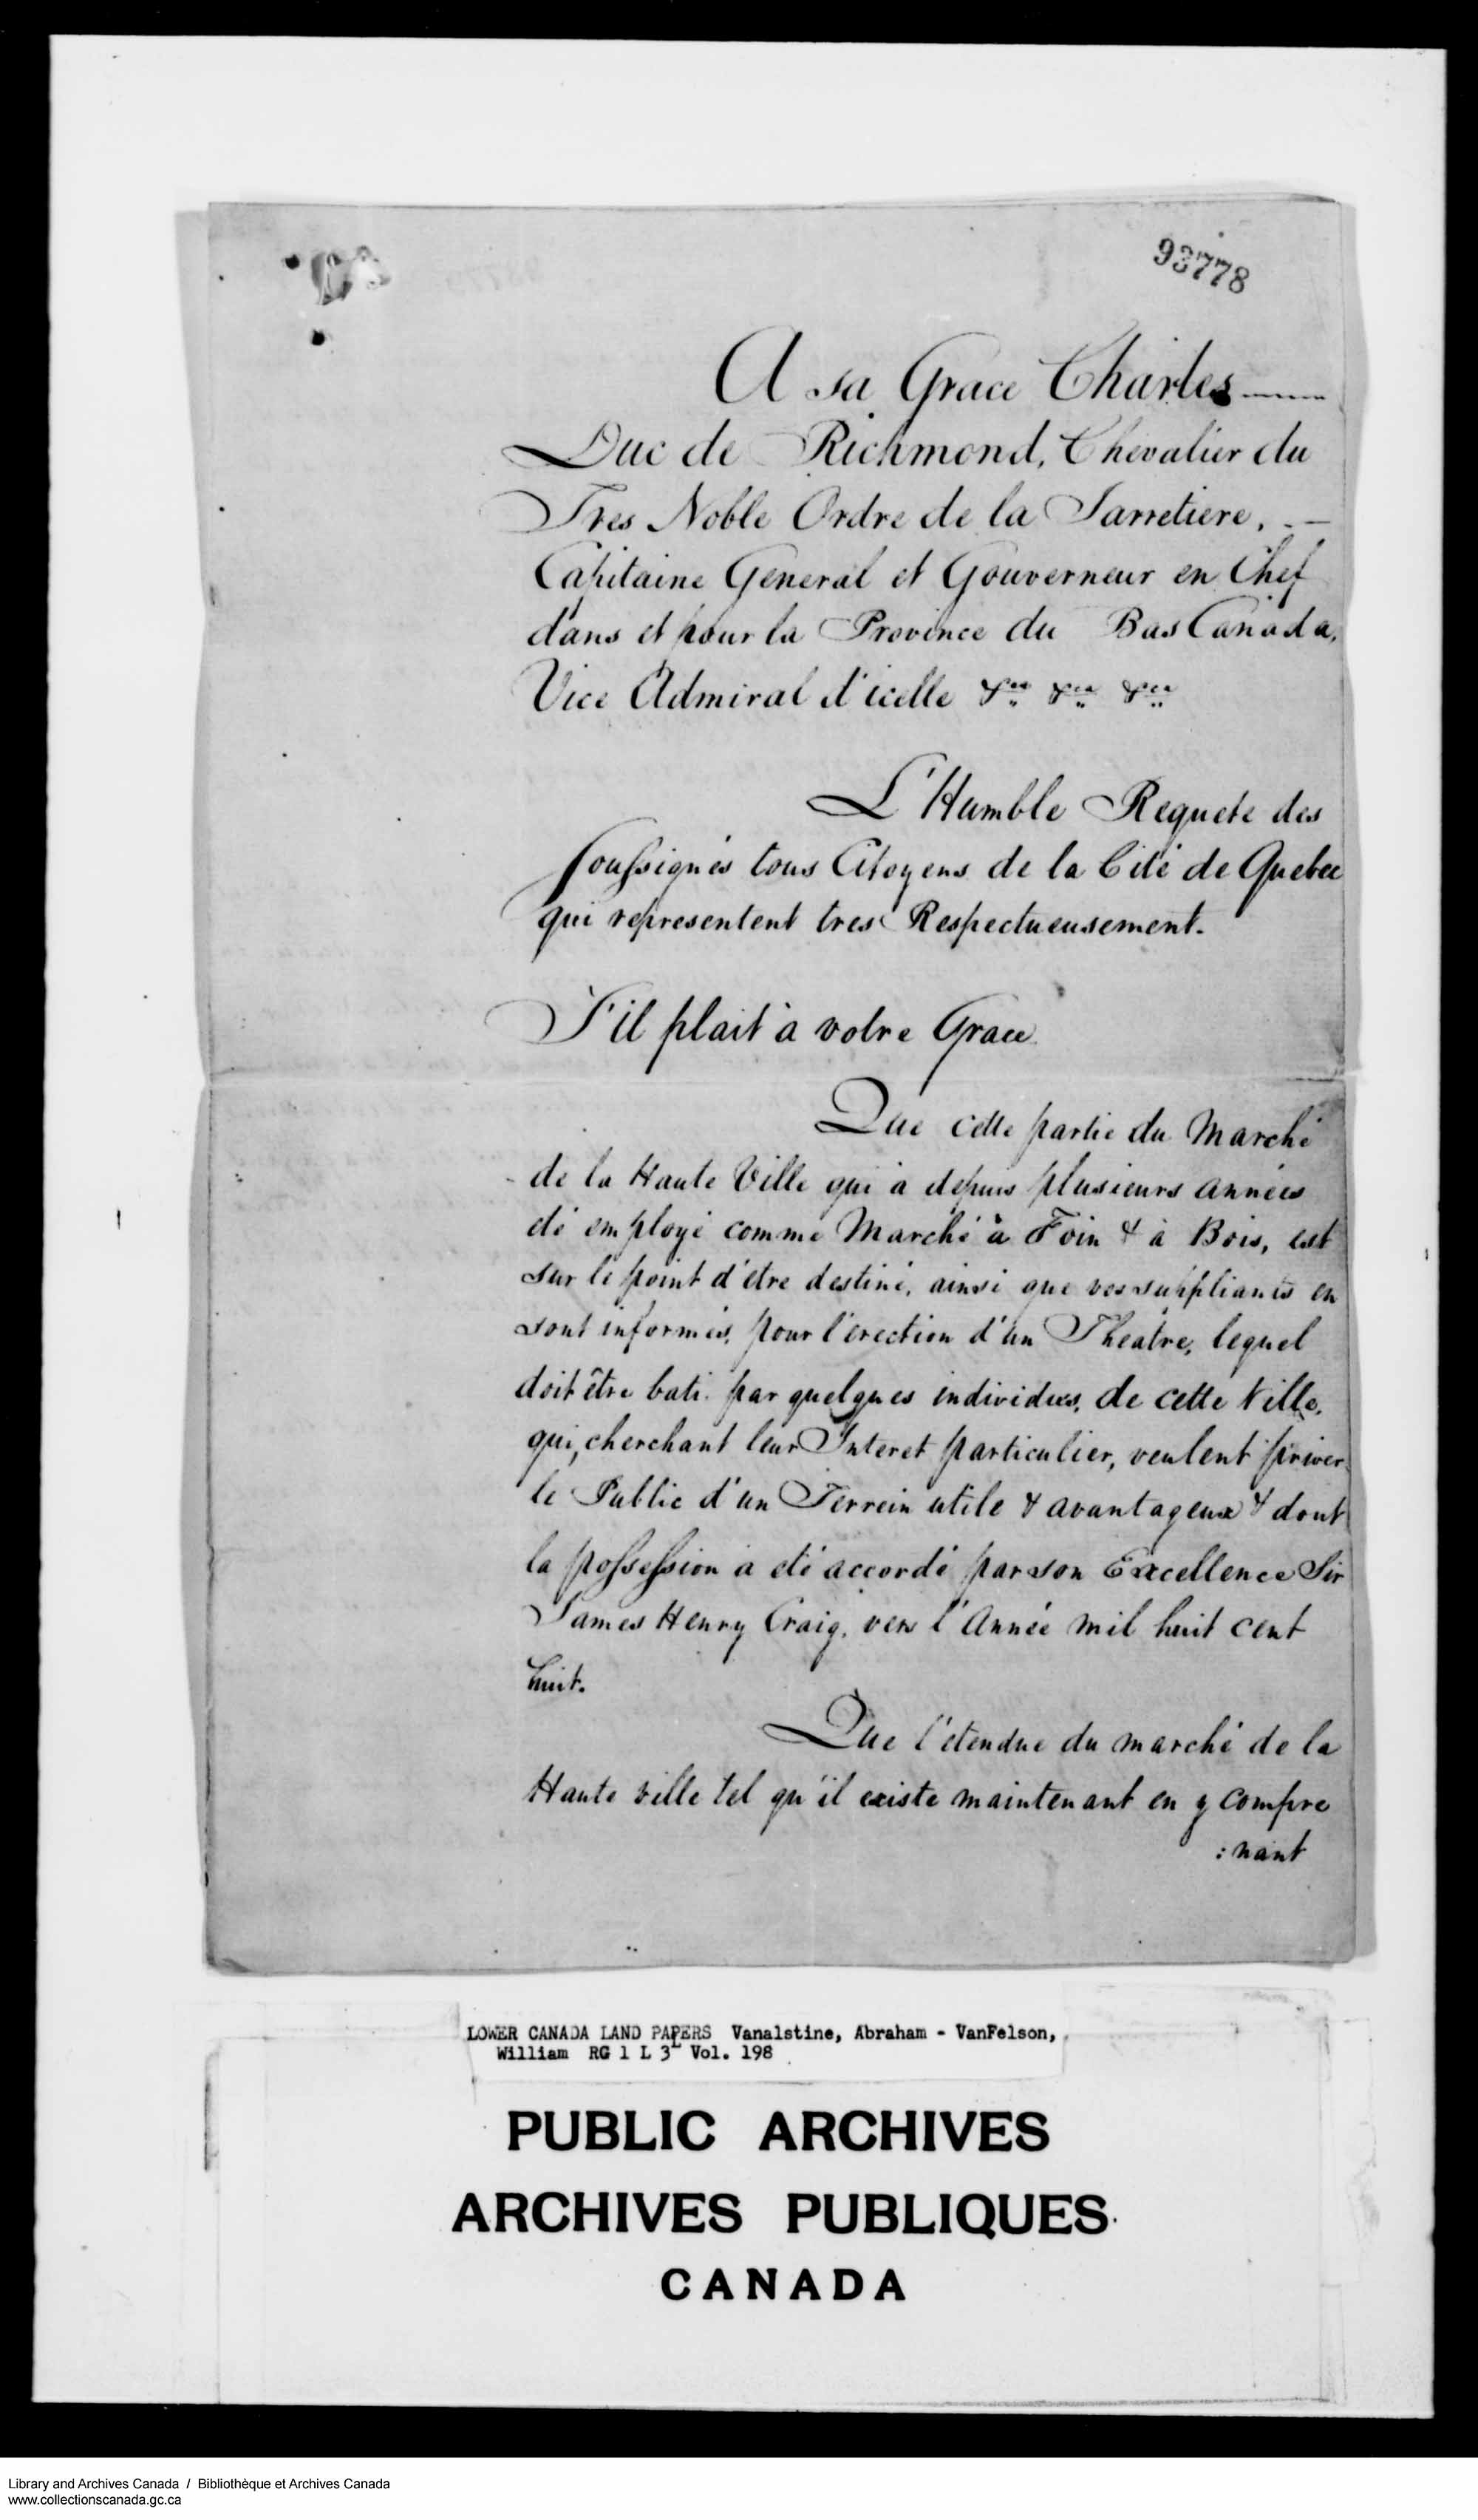 93778
A sa Grace Charles
Duc de Richmond, Chevalier du
Tres Noble Ordre de la Jarretiere,
Capitaine General et Gouverneur en Chef
dans et pour la Province du Bas Canada,
Vice Admiral d'icelle &ca &ca &ca
L'Humble Requete des
Soussignés tous Citoyens de la Cité de Quebec
qui representent tres Respectueusement.
S'il plait à votre Grace
Que cette partie du Marché
de la Haute Ville qui a depuis plusieurs années
été employé comme Marché à Foin & à Bois, est
sur le point d'etre destiné, ainsi que vos suppliants en
sont informés, pour l'erection d'un Theatre, lequel
doit être bati par quelques individus, de cette Ville,
qui, cherchant leur Interet particulier, veulent priver
le Public d'un Terrein utile & avantageux & dont
la possession a été accordé par son Excellence Sir
James Henry Craig, vers l'Année mil huit cent
huit.
Que l'etendue du marché de la
Haute ville tel qu'il existe maintenant en y compre
:nant
LOWER CANADA LAND PAPERS Vanalstine, Abraham - VanFelson,
William RG 1 L 3L Vol. 198
PUBLIC ARCHIVES
ARCHIVES PUBLIQUES
CANADA
Library and Archives Canada / Bibliothèque et Archives Canada
www.collectionscanada.gc.ca